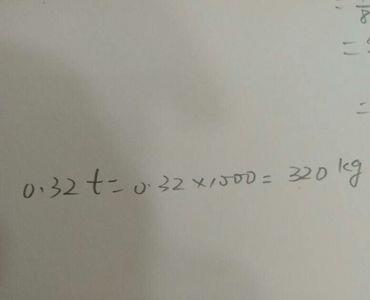 8
=
=
0.32t=0.32×1000=320kg